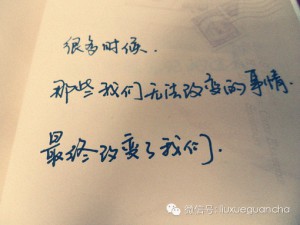 很多时候.
那些我们无法改变的事情.
最终改变了我们.
微信号: liuxueguancha